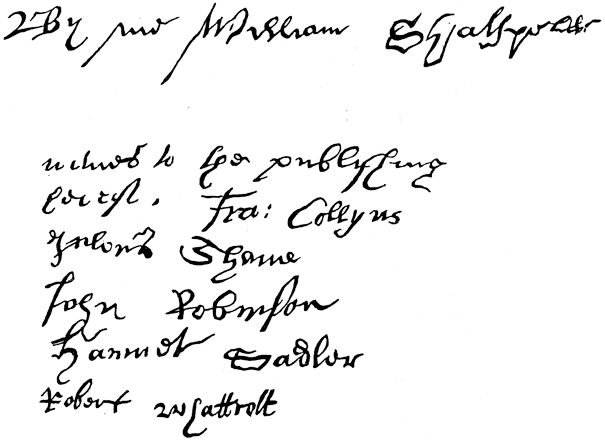 By me William Shakspeare
witnes to the publyshing
hereof. Fra: Collyns
Julyus Shawe
John Robinson
Hamnet Sadler
Robert Whattcott